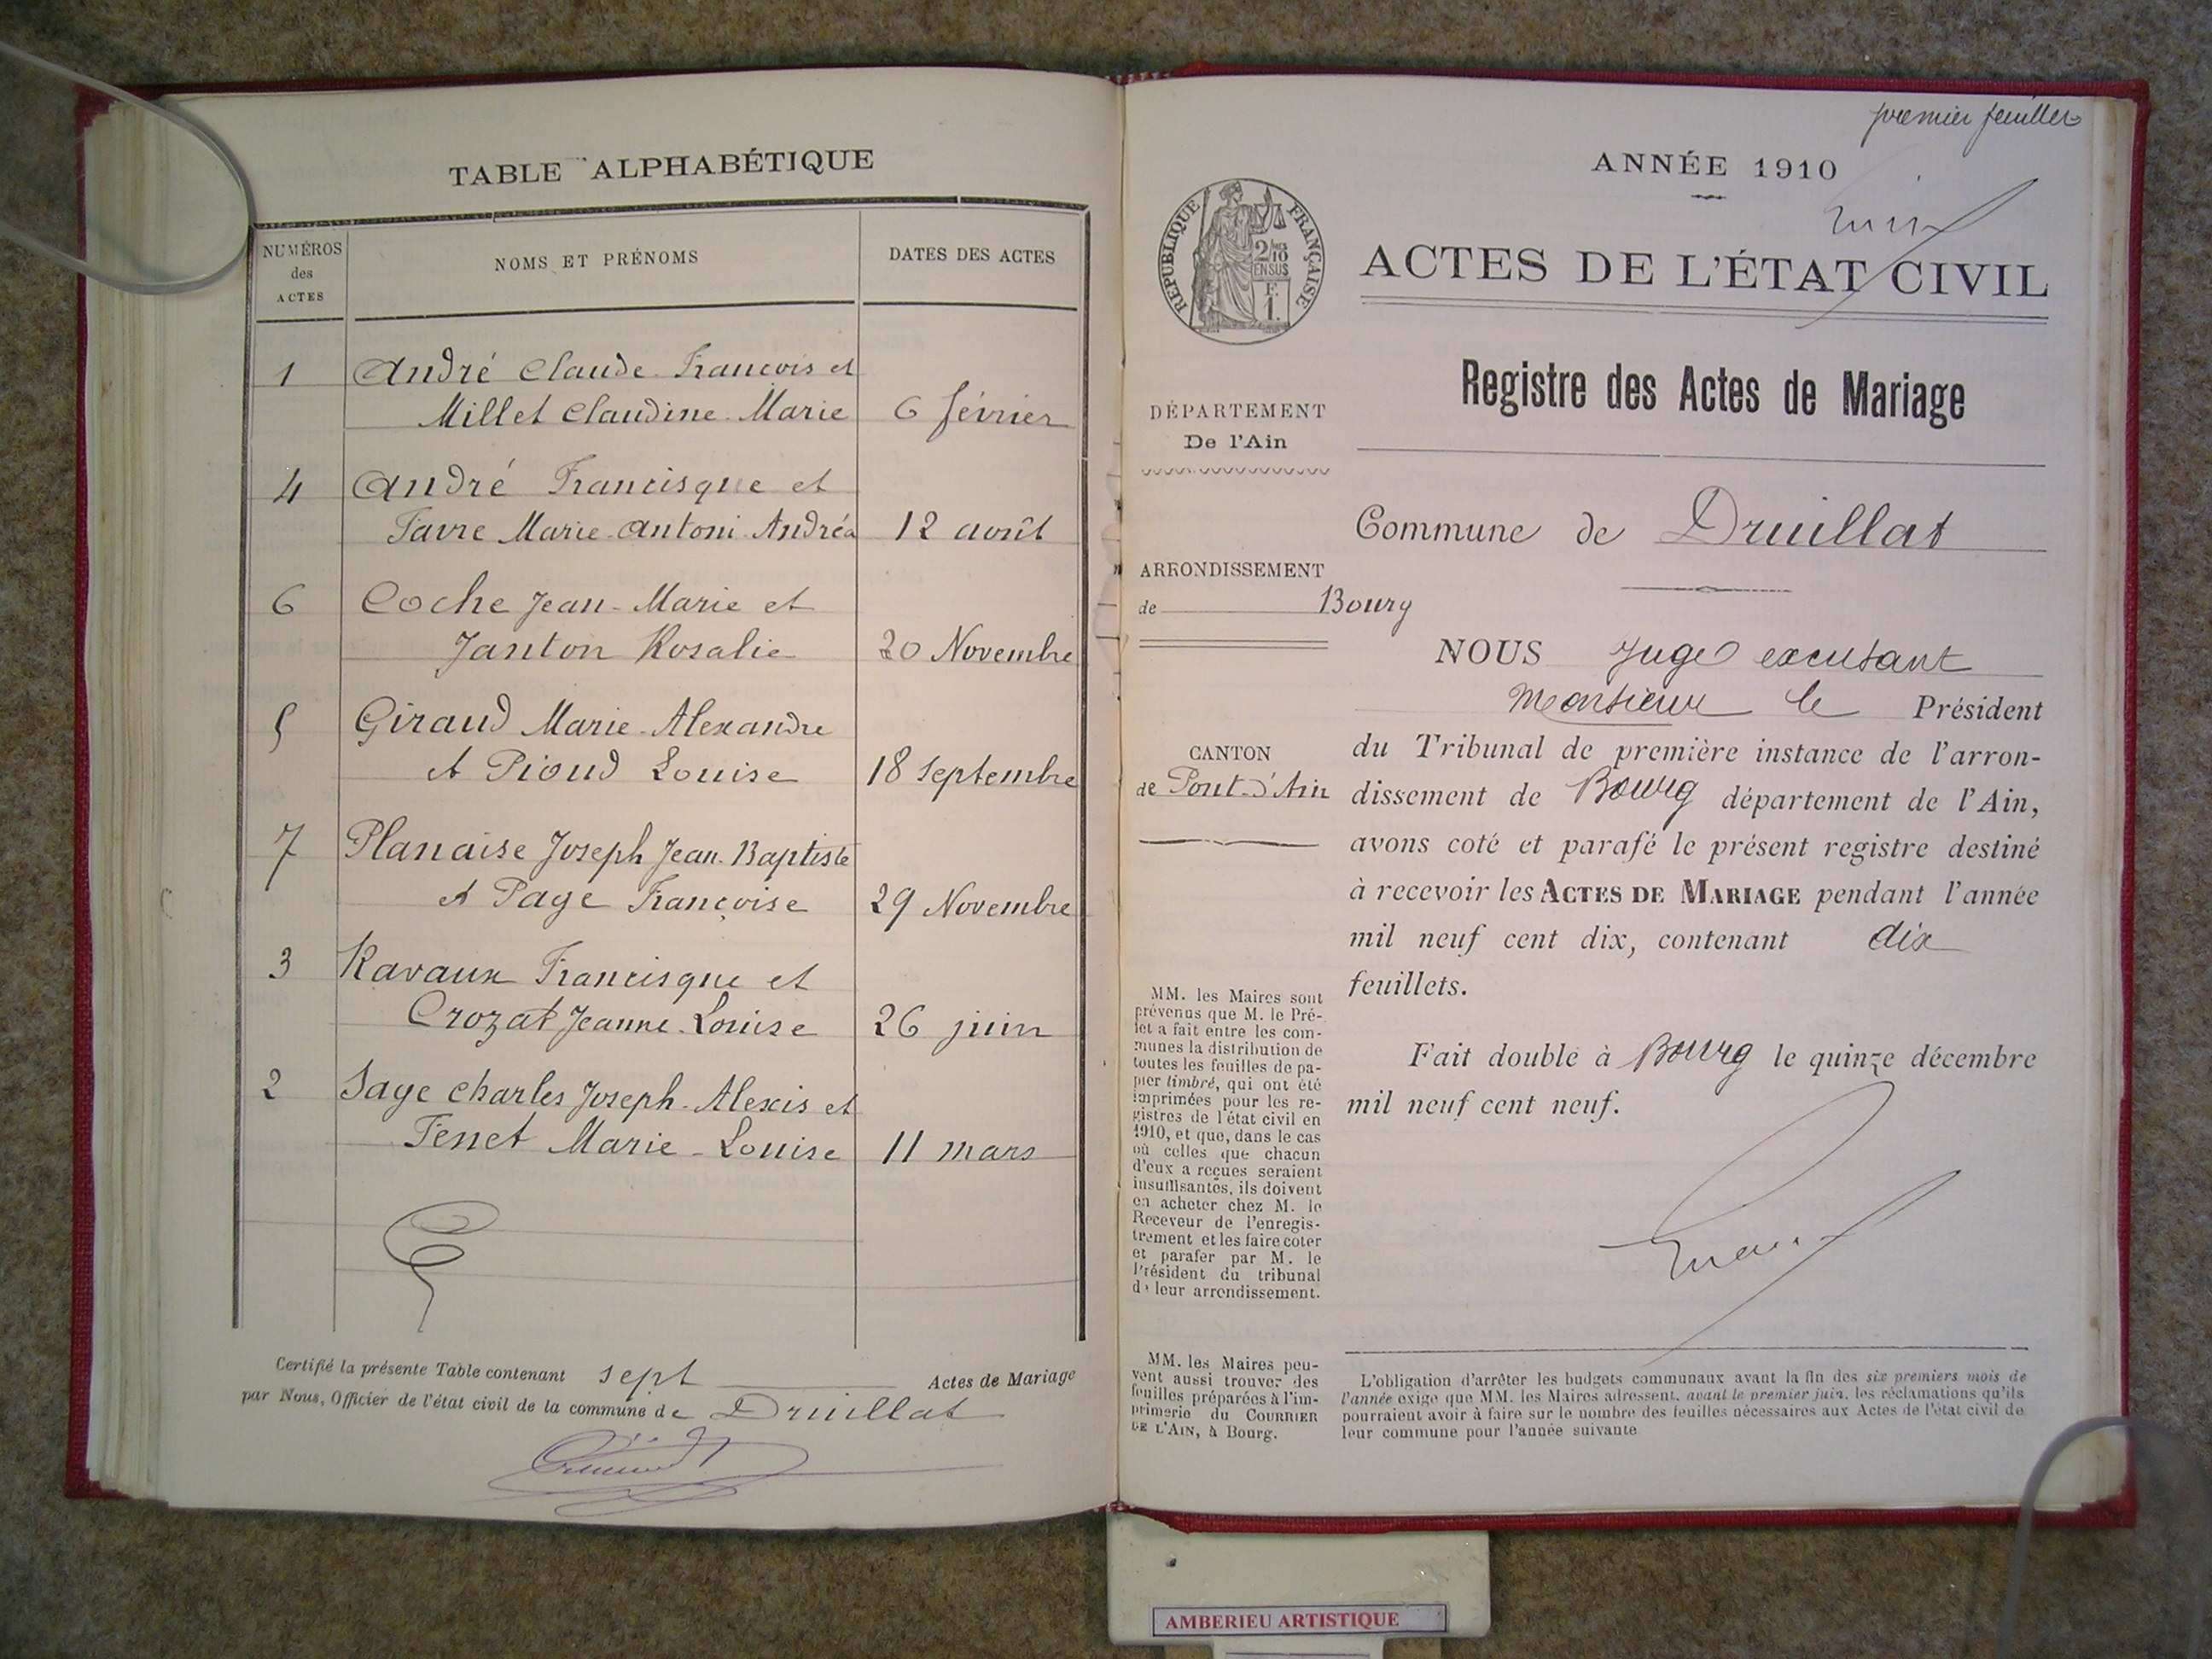 TABLE ALPHABÉTIQUE
NUMÉROS
des
ACTES
NOMS ET PRÉNOMS
DATES DES ACTES
1 André Claude François et
Millet Claudine Marie 6 février
4 André Francisque et
Favre Marie-Antoni Andréa 12 août
6 Coche Jean-Marie et
Janton Rosalie 20 Novembre
5 Giraud Marie-Alexandre
et Pioud Louise 18 septembre
7 Planaise Joseph Jean-Baptiste
et Page Françoise 29 Novembre
3 Ravaux Francisque et
Crozat Jeanne-Louise 26 juin
2 Sage Charles Joseph-Alexis et
Tenet Marie-Louise 11 mars
Certifié la présente Table contenant sept Actes de Mariage
par Nous, Officier de l'état civil de la commune de Druillat
premier feuillet
ANNÉE 1910
RÉPUBLIQUE FRANÇAISE
2/10
EN SUS
F.
1.
ACTES DE L'ÉTAT CIVIL
Registre des Actes de Mariage
DÉPARTEMENT
De l'Ain
Commune de Druillat
ARRONDISSEMENT
de Bourg
CANTON
de Pont-d'Ain
NOUS Juge excusant
Monsieur le Président
du Tribunal de première instance de l'arron-
dissement de Bourg département de l'Ain,
avons coté et parafé le présent registre destiné
à recevoir les ACTES DE MARIAGE pendant l'année
mil neuf cent dix, contenant dix
feuillets.
Fait double à Bourg le quinze décembre
mil neuf cent neuf.
MM. les Maires sont
prévenus que M. le Pré-
fet a fait entre les com-
munes la distribution de
toutes les feuilles de pa-
pier timbré, qui ont été
imprimées pour les re-
gistres de l'état civil en
1910, et que, dans le cas
où celles que chacun
d'eux a reçues seraient
insuffisantes, ils doivent
en acheter chez M. le
Receveur de l'enregis-
trement et les faire coter
et parafer par M. le
Président du tribunal
de leur arrondissement.
MM. les Maires peu-
vent aussi trouver des
feuilles préparées à l'im-
primerie du COURRIER
DE L'AIN, à Bourg.
L'obligation d'arrêter les budgets communaux avant la fin des six premiers mois de
l'année exige que MM. les Maires adressent, avant le premier juin, les réclamations qu'ils
pourraient avoir à faire sur le nombre des feuilles nécessaires aux Actes de l'état civil de
leur commune pour l'année suivante
AMBERIEU ARTISTIQUE